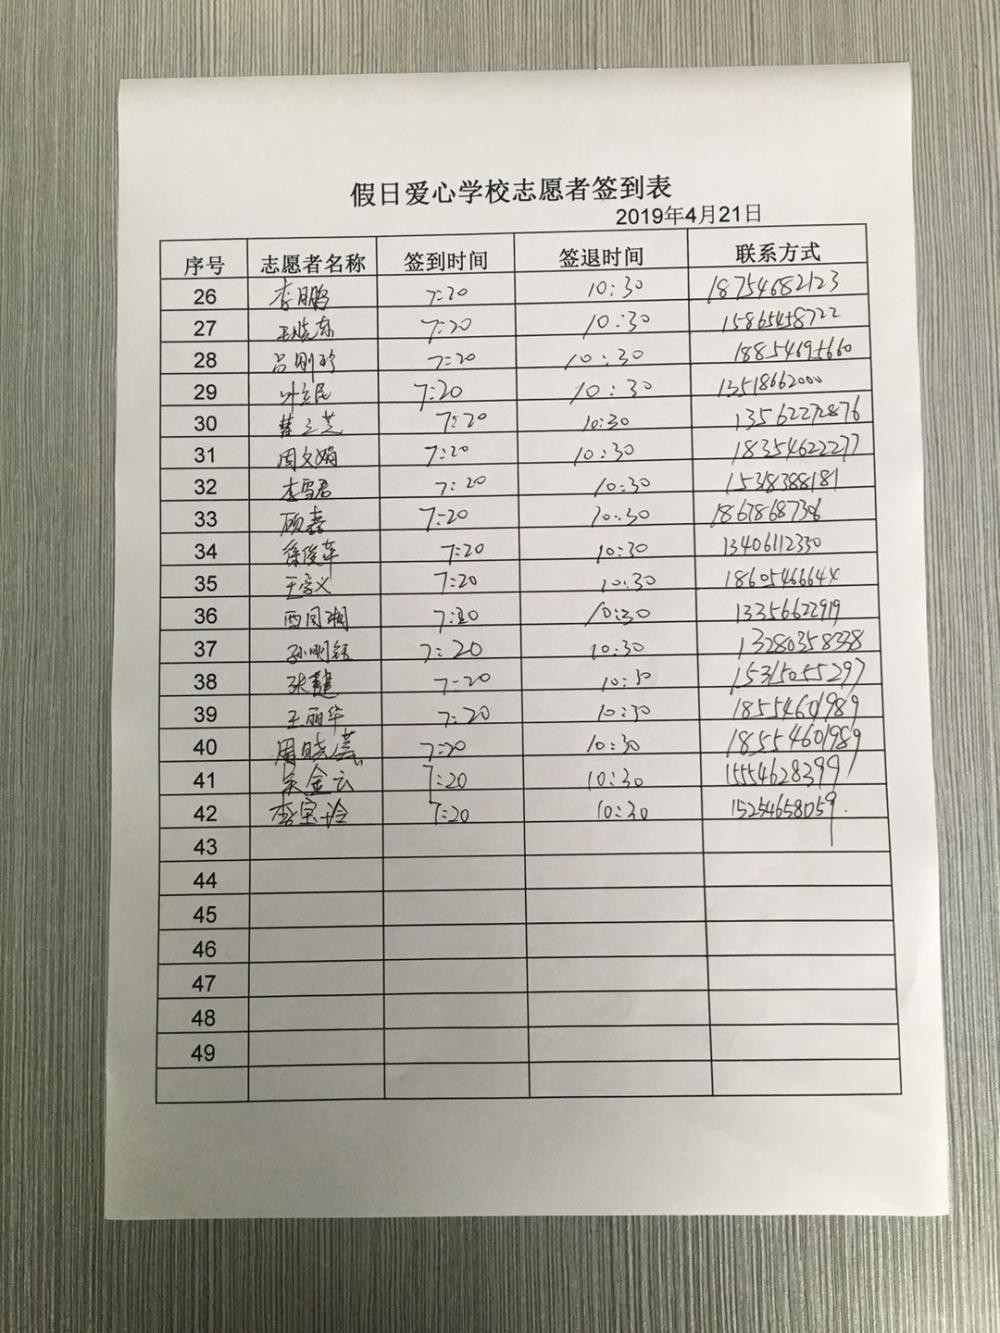 假日爱心学校志愿者签到表
2019年4月21日
序号 志愿者名称 签到时间 签退时间 联系方式
26 李鹏 7:20 10:30 18754682123
27 王晓东 7:20 10:30 15865458722
28 吕刚珍 7:20 10:30 18854695660
29 叶立民 7:20 10:30 13518662000
30 7:20 10:30 13562272876
31 周文娟 7:20 10:30 18354622277
32 李雪君 7:20 10:30 15318388181
33 顾嘉 7:20 10:30
34 徐俊萍 7:20 10:30 13406112330
35 7:20 10:30 18605466644
36 7:20 10:30 13356622919
37 孙明钰 7:20 10:30 13280358338
38 张健 7:20 10:30 15315055297
39 王丽华 7:20 10:30 18554601989
40 周晓燕 7:20 10:30 18554601989
41 宋金云 7:20 10:30 15554628399
42 李宝玲 7:20 10:30 15254658059.
43
44
45
46
47
48
49